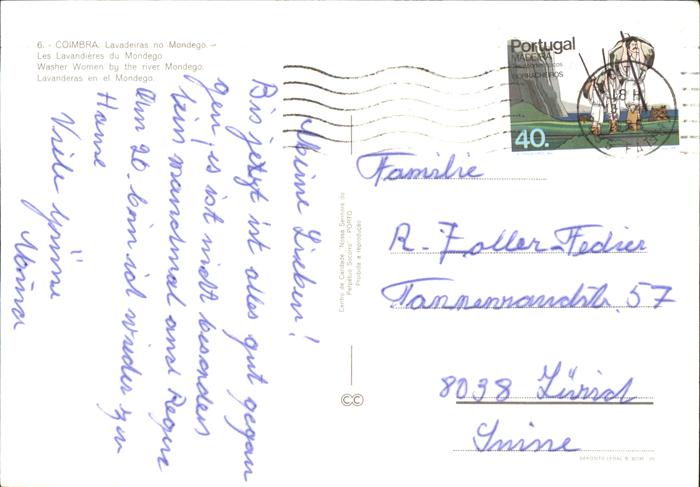 6. - COIMBRA. Lavadeiras no Mondego. -
Les Lavandières du Mondego
Washer Women by the river Mondego.
Lavanderas en el Mondego.
Meine Lieben!
Bis jetzt ist alles gut gegan
gen, es ist nicht besonders
kein manchmal and Regen
Am 20. bin ich wieder zu
Hause
Viele Grüsse
Centro de Caridade "Nossa Senhora do
Perpétuo Socorro" - PORTO
Proibida a reprodução
CC
Portugal
MADEIRA
BORRACHEIROS
40.
Familie
R. Zoller-Fedier
Tannenrauchstr. 57
8038 Zürich
Suisse